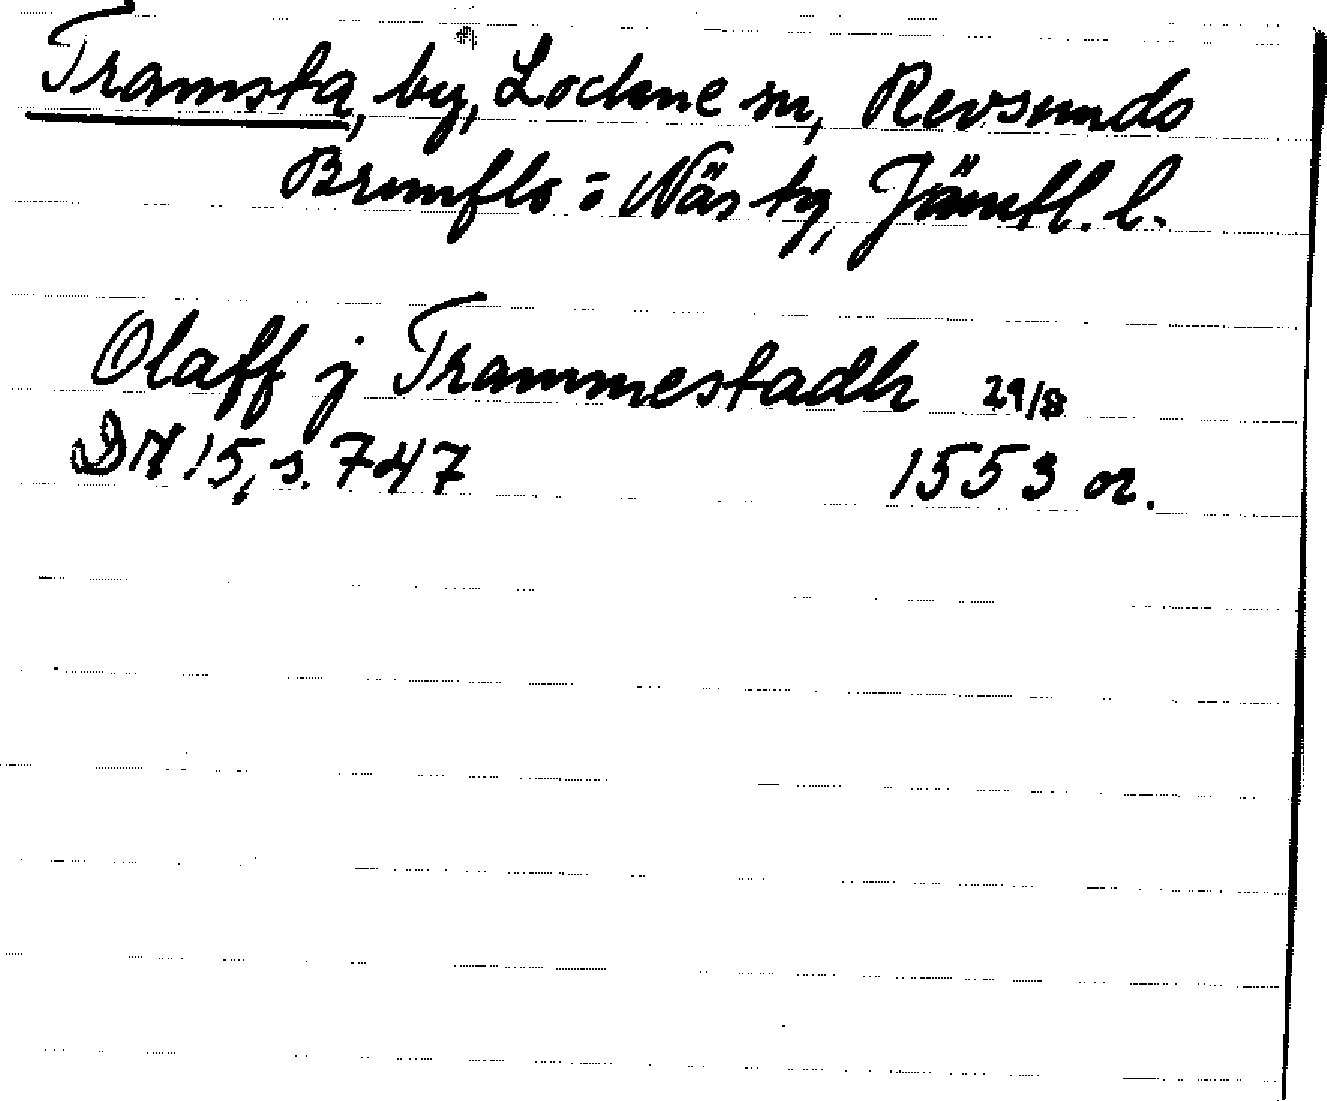 Tramsta, by, Lockne sn, Revsunds
Brunflo o Näs tg, Jämtl. l.
Olaff j Trammestadh 29/8
DN 15, s. 747 1553 or.